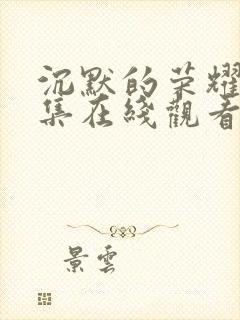 沉默的荣耀
集在綫觀看
景雲